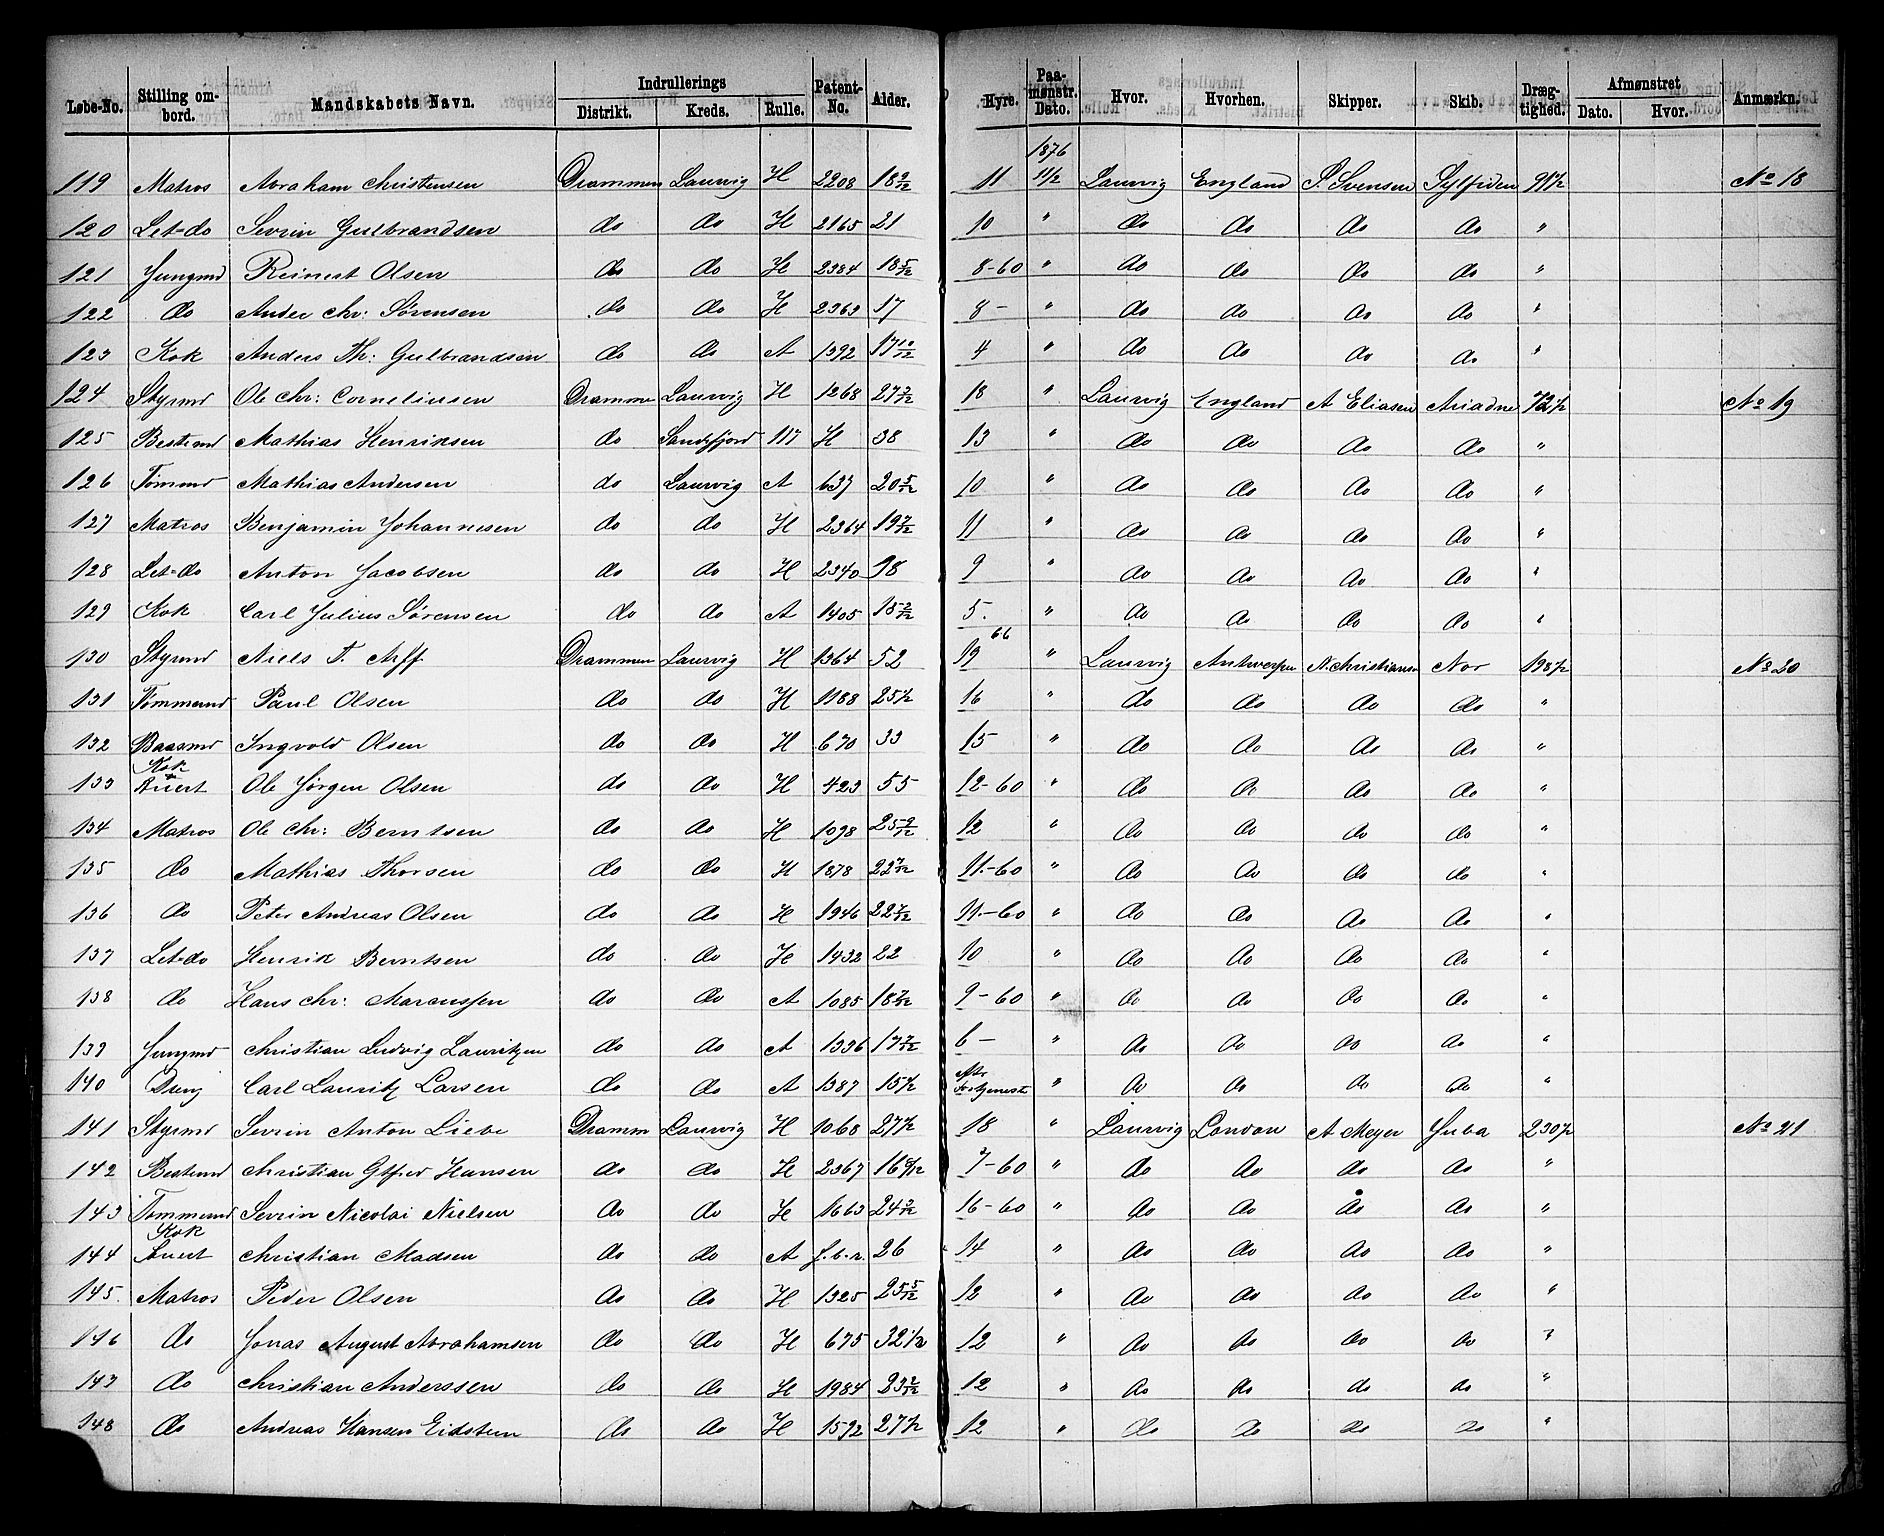 Løbe-No. Stilling ombord. Mandskabets Navn. Indrullerings Distrikt. Kreds. Rulle. Patent-No. Alder. Hyre. Paamønstr. Dato. Hvor. Hvorhen. Skipper. Skib. Drægtighed. Afmønstret Dato. Hvor. Anmærkn.
1876
119 Matros Abraham Christensen Drammen Laurvig H 2208 11 11/2 Laurvig England P. Svensen Sylfiden No 18
120 Let-do Sevrin Gulbrandsen do do H 2165 21 10 " do do do do "
121 Jungmd Reinert Olsen do do H 2384 18 5/12 8-60 " do do do do "
122 do Ander Chr: Sørensen do do H 2363 17 8- " do do do do "
123 Kok Anders Th: Gulbrandsen do do A 1392 17 10/12 4 " do do do do "
124 Styrmd Ole Chr: Corneliusen Dramme Laurvig H 1268 18 " Laurvig England A Eliasen Ariadne No 19
125 Bestmd Mathias Henriksen do Sandefjord 117 H 38 13 " do do do do "
126 Tømmd Mathias Andersen do Laurvig A 637 20 5/12 10 " do do do do "
127 Matros Benjamin Johannesen do do H 2364 19 7/12 11 " do do do do "
128 Let-do Anton Jacobsen do do H 2340 9 " do do do do "
129 Kok Carl Julius Sørensen do do A 1405 5. " do do do do "
130 Styrmd Niels T. Arff Drammen Laurvig H 1364 52 19 66 " Laurvig Antwerpen N. Christiansen Nor 198 1/2 No 20
131 Tømmermd Paul Olsen do do H 1188 25 1/2 16 " do do do do "
132 Baasmd Ingvold Olsen do do H 670 33 15 " do do do do "
Kok
133 Stuert Ole Jørgen Olsen do do H 423 55 12-60 " do do do do "
134 Matros Ole Chr: Berntsen do do H 1098 12 " do do do do "
135 do Mathias Thorsen do do H 1878 22 7/12 11-60 " do do do do "
136 do Peter Andreas Olsen do do H 1946 22 7/12 11-60 " do do do do "
137 Let-do Henrik Berntsen do do H 1432 22 10 " do do do do "
138 do Hans Chr: Marcussen do do A 1085 18 7/12 9-60 " do do do do "
139 Jungmd Christian Ludvig Lauritzen do do A 1336 6- " do do do do "
140 Dreng Carl Lauritz Larsen do do A 1387 15 1/2 efter fortjeneste " do do do do "
141 Styrmd Sevrin Anton Liebe Dramm Laurvig H 1068 27 1/2 18 " Laurvig London A Meyer Juba 230 1/2 No 21
142 Bestmd Christian Gtfied Hansen do do H 2367 7-60 " do do do do "
143 Tømmermd Sevrin Nicolai Nielsen do do H 1663 16-60 " do do do do "
Kok
144 Stuert Christian Madsen do do A f.b.r. 26 14 " do do do do "
145 Matros Peder Olsen do do H 1325 25 5/12 12 " do do do do "
146 do Jonas August Abrahamsen do do H 675 32 1/2 12 " do do do do "
147 do Christian Anderssen do do H 1984 23 2/12 12 " do do do do "
148 do Andreas Hansen Eidsten do do H 1592 27 1/2 12 " do do do do "